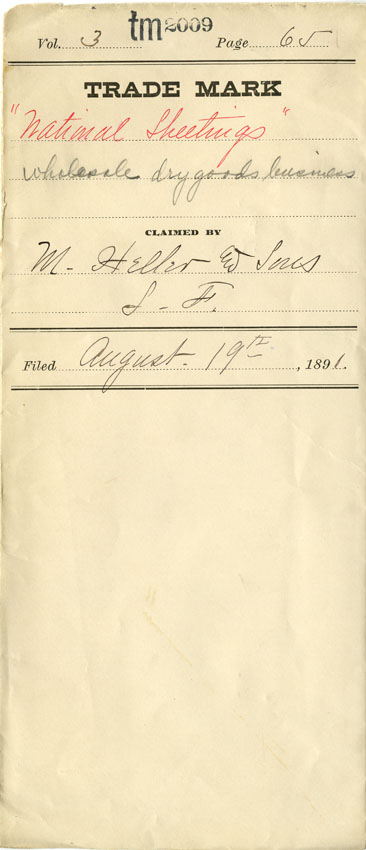 tm2009
Vol. 3 Page 65
TRADE MARK
"National Sheetings"
wholesale drygoods business
CLAIMED BY
M. Heller & Sons
S. F.
Filed August. 19th, 1891.